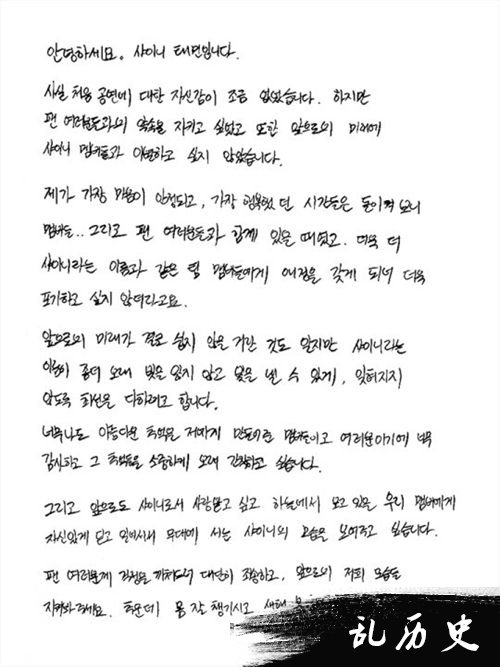 안녕하세요. 샤이니 태민입니다.
사실 처음 공연에 대한 자신감이 조금 없었습니다. 하지만
팬 여러분들과의 약속을 지키고 싶었고 또한 앞으로의 미래에
샤이니 멤버들과 이별하고 싶지 않았습니다.
제가 가장 마음이 안정되고, 가장 행복했던 시간들은 돌이켜 보니
멤버들.. 그리고 팬 여러분들과 함께 있을 때였고. 더욱 더
샤이니라는 이름과 같은 팀 멤버들에게 애정을 갖게 되니 더욱
포기하고 싶지 않더라고요.
앞으로의 미래가 결코 쉽지 않은 거란 것도 알지만 샤이니라는
이름이 좀더 오래 빛을 잃지 않고 빛을 낼 수 있게, 잊혀지지
않도록 최선을 다하려고 합니다.
너무나도 아름다운 추억을 저에게 만들어준 멤버들이고 여러분이기에 너무
감사하고 그 추억들을 소중하게 오래 간직하고 싶습니다.
그리고 앞으로도 샤이니로서 사랑받고 싶고 하늘에서 보고 있을 우리 멤버에게
자신있게 믿고 일어서서 무대에 서는 샤이니의 모습을 보여주고 싶습니다.
팬 여러분께 걱정을 끼쳐드려 대단히 죄송하고, 앞으로의 저희 모습을
지켜봐주세요. 추운데 몸 잘 챙기시고 새해
乱历史